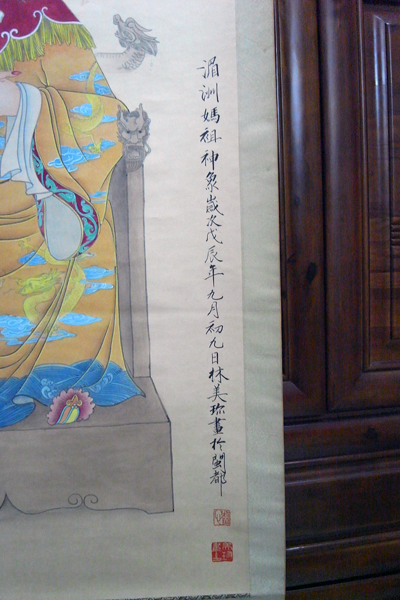 湄洲媽祖神象歲次戊辰年九月初九日林美珍畫於閩都